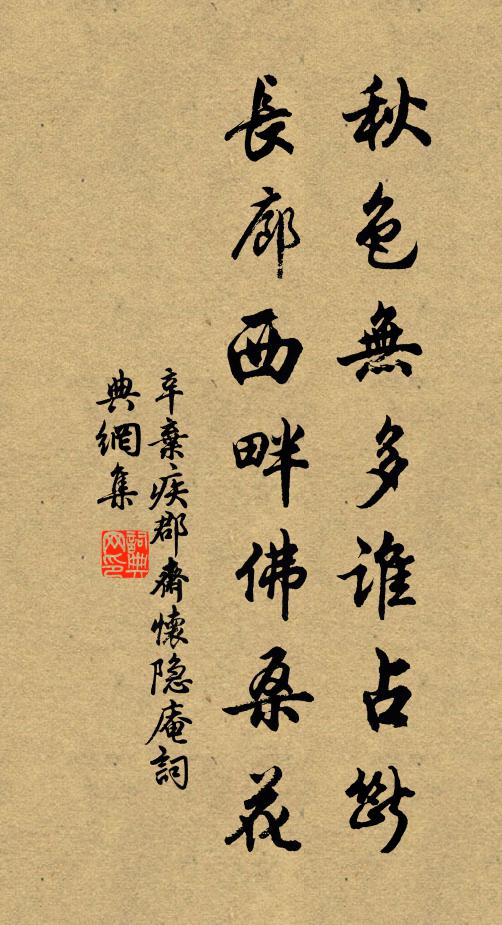 秋色無多誰占斷
長廊西畔佛桑花
辛棄疾郡齋懷隐庵詞
典網集
詞典网印